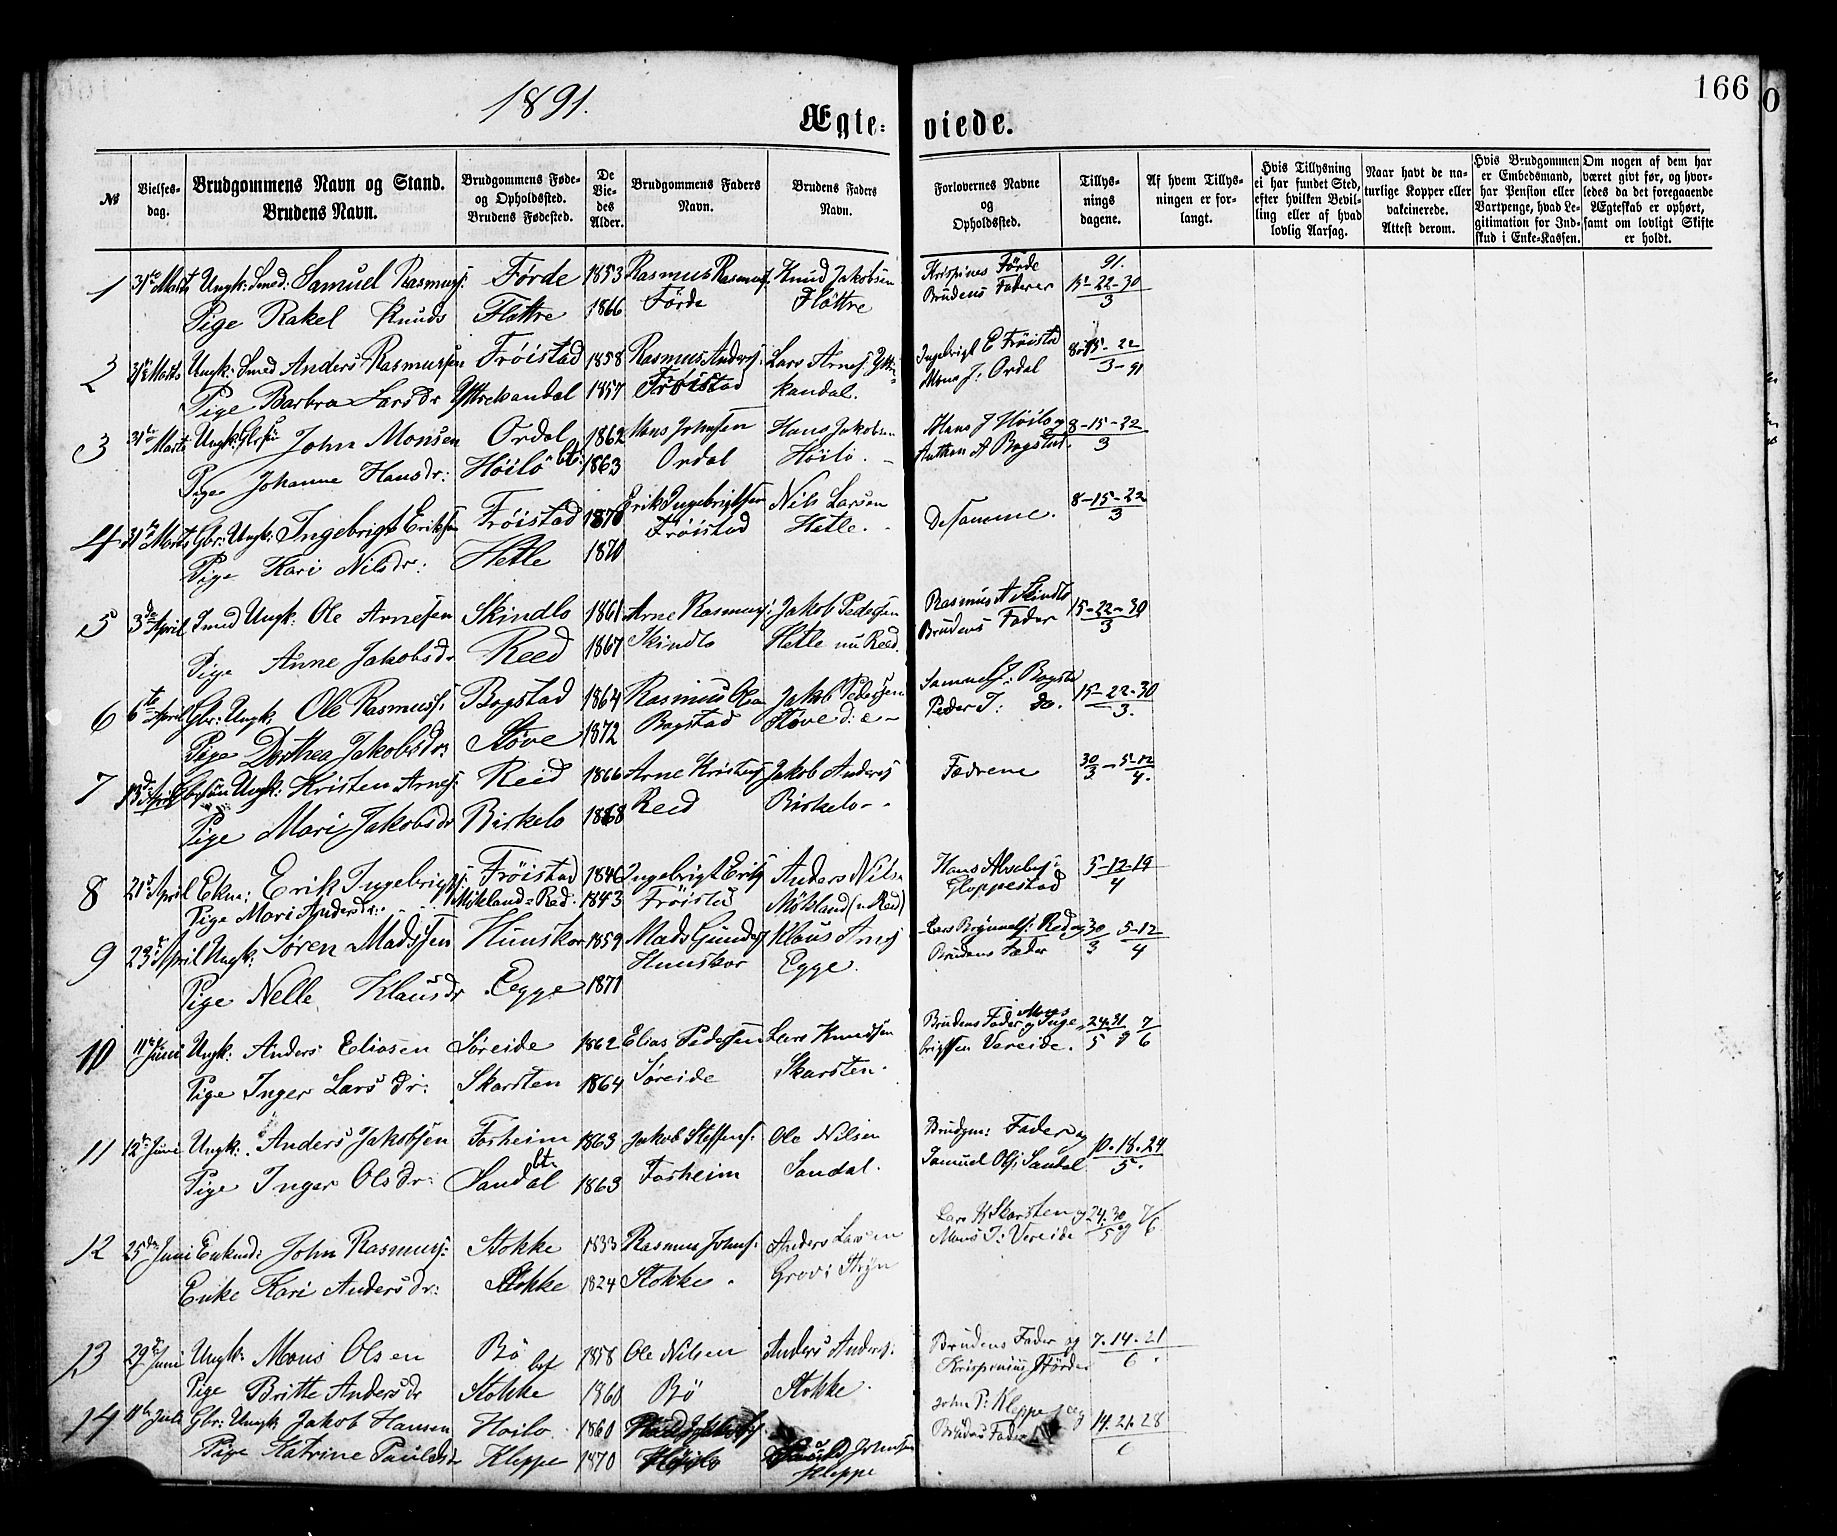 1891.
166
Ægte-
viede.
№
Vielses-
dag.
Brudgommens Navn og Stand.
Brudens Navn.
Brudgommens Føde-
og Opholdssted.
Brudens Fødested.
De
Vie-
des
Alder.
Brudgommens Faders
Navn.
Brudens Faders
Navn.
Forlovernes Navne
og
Opholdssted.
Tillys-
nings
dagene.
Af hvem Tillys-
ningen er for-
langt.
Hvis Tillysning
ei har fundet Sted,
efter hvilken Bevil-
ling eller af hvad
lovlig Aarsag.
Naar havt de na-
turlige Kopper eller
vakcinerede.
Attest derom.
Hvis Brudgommen
er Embedsmand,
har Pension eller
Vartpenge, hvad Le-
gitimation for Ind-
skud i Enke-Kassen.
Om nogen af dem har
været gift før, og hvor-
ledes da det foregaaende
Ægteskab er ophørt,
samt om lovligt Skifte
er holdt.
1 31te Marts Ungk: Smed: Samuel Rasmuss: Førde 1853 Rasmus Rasmuss: Knud Jakobsen Krispines Førde 91.
Pige Rakel Knuds Fløttre 1866 Førde Fløttre Brudens Fader 15-22-30
3
2 31te Marts Ungk: Smed Anders Rasmussen Frøistad 1858 Rasmus Anders: Lars Arnes Ytre= Ingebrigt E Frøistad 8-15-22
Pige Barbra Larsdr Yttrekandal 1857 Frøistad kandal. Mons J: Ordal 3-91
3 31te Marts Ungk: John Monsen Ordal 1862 Mons Johnsen Hans Jakobsen Hans J Høilo og 8-15-22
Pige Johanne Hansdr: Høilo 1863 Ordal Høilo. - Anthon A Bogstad. 3
4 31te Marts Gbr: Ungk: Ingebrigt Eriksen Frøistad 1870 Erik Ingebrigtsen Nils Larsen De samme. 8-15-22
Pige Kari Nilsdr: Hetle 1870 Frøistad Hetle. - 3
5 3de April Smed Ungk: Ole Arnesen Skindlo 1861 Arne Rasmuss: Jakob Pedersen Rasmus A Skindlo 15-22-30
Pige Anne Jakobsdr Reed 1867 Skindlo Hetle nu Reed. Brudens Fader 3
6 6te April Gbr: Ungk: Ole Rasmuss: Bogstad 1864 Rasmus Olsen Jakob Pedersen Samuel J: Bogstad 15-22-30
Pige Dorthea Jakobsdr: Støve 1872 Bogstad Støve Peder J: do. 3.
7 13de April Ungk: Kristen Arnes: Reid 1866 Arne Kristens Jakob Anders Fædrene 30 - 5-12
Pige Mari Jakobsdr Birkelo 1868 Reed Birkelo - - 3 4.
8 21de April Ekm: Erik Ingebrigts: Frøistad 1846 Ingebrigt Eriks Anders Nils 5-12-19
Pige Mari Andersdr: Mökland=Red. 1843 Frøistad Mökland (n Reed) Gloppestad 4
9 23de April Ungk: Søren Madssen Hunskor 1859 Mads Gunders Klaus Anes Lars Brynnels: Red og 30 5-12
Pige Nelle Klausdr Egge 1871 Hunskor Egge. Brudens Fader 3 4
10 11te Juni Ungk: Anders Eliasen Søreide 1862 Elias Pedersen Lars Knudsen Brudens Fader og Mons Inge= 24-31 7
Pige Inger Larsdr: Skarsten 1864 Søreide Skarsten. brigtsen Vereide. 5 og 6
11 12te Juni Ungk: Anders Jakobsen Forheim 1863 Jakob Steffens: Ole Nilsen Brudgm: Fader og 10-18-24
Pige Inger Olsdr: Sandal 1863 Forheim Sandal. Samuel Ols: Sandal 5.
12 25de Juni Enkmd: John Rasmuss: Stokke 1833 Rasmus Johns: Anders Larsen Lars K Skarsten og 24-30 7/6
Enke Kari Andersdr: Stokke 1824 Stokke. Grov i Stryn Mons I: Vereide 5 og
13 29de Juni Ungk: Mons Olsen Bø 1858 Ole Nilsen Anders Anders: Brudens Fader og 7-14-21
Pige Britte Andersdr Stokke 1860 Bø Stokke. Krispinius Förde 6.
14 Juli Gbr: Ungk: Jakob Hansen Hoilo 1860 John P: Kleppe og 14-21-28
Pige Katrine Paulsdr Kleppe 1870 Höjlo Johnsen Kleppe Brudens Fader